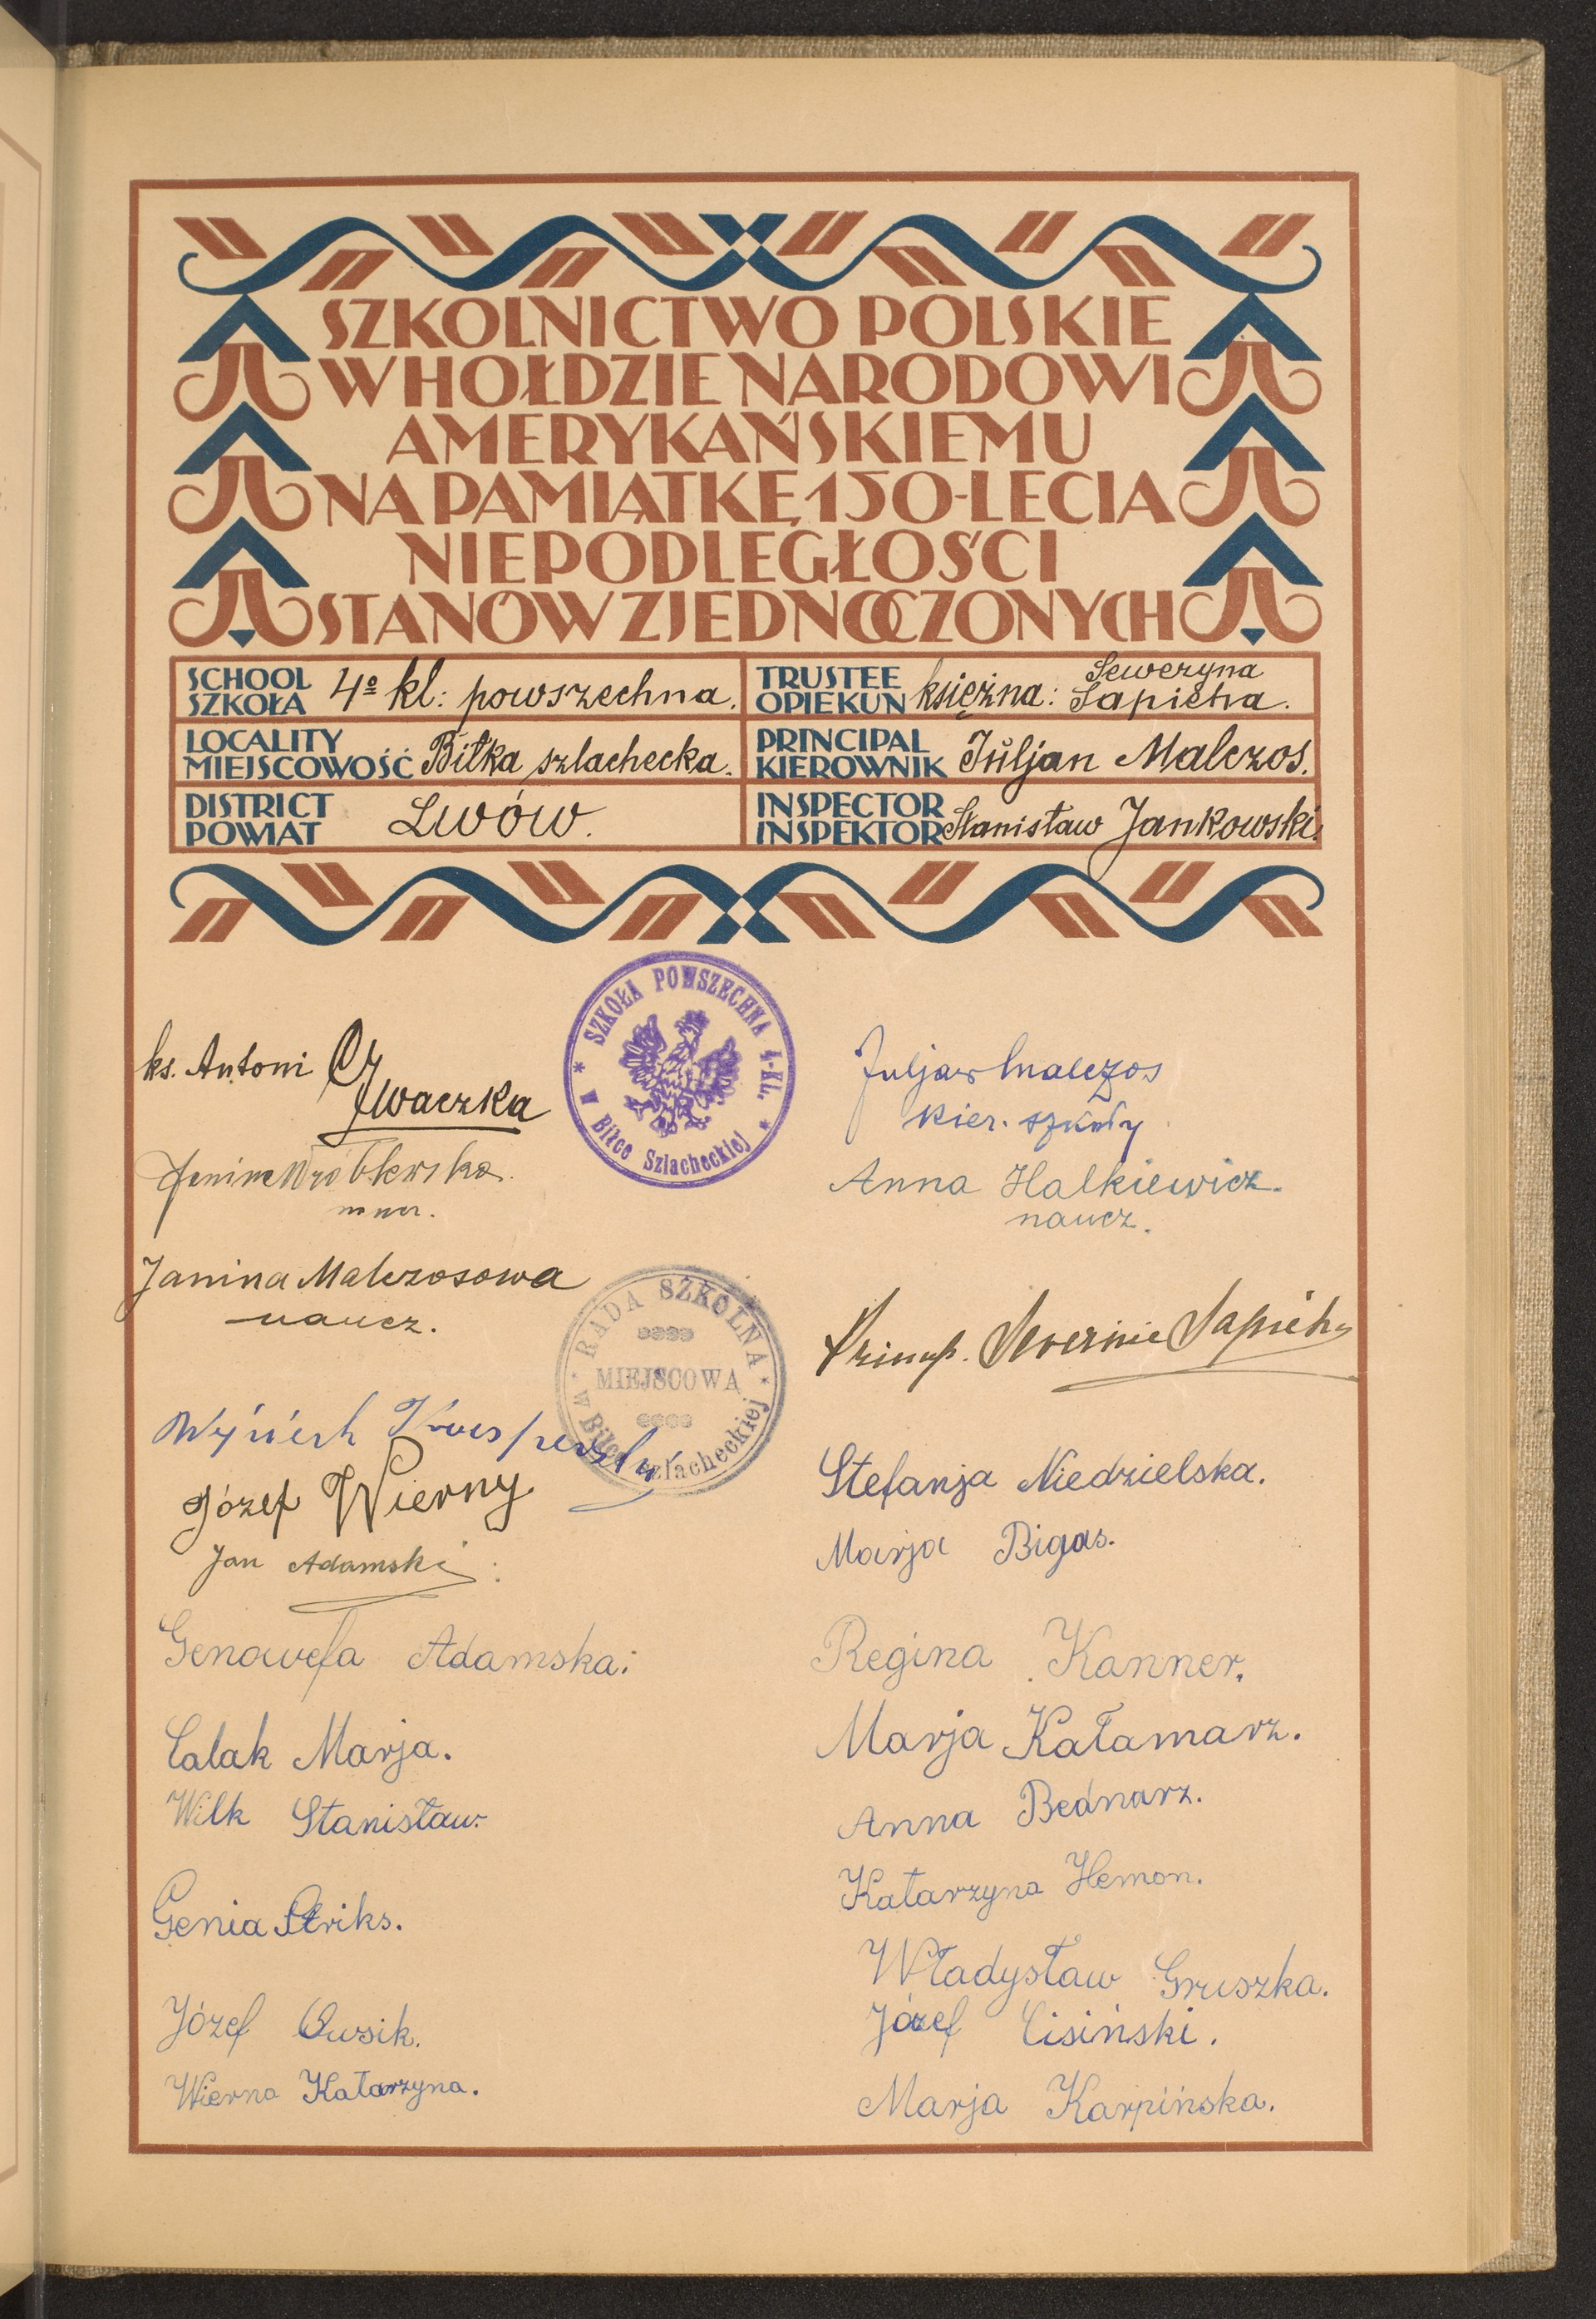 SZKOLNICTWO POLSKIE
W HOŁDZIE NARODOWI
AMERYKAŃSKIEMU
NA PAMIĄTKĘ 150-LECIA
NIEPODLEGŁOŚCI
STANÓW ZJEDNOCZONYCH
SCHOOL
SZKOŁA
4º kl: powszechna.
TRUSTEE
OPIEKUN
księżna: Seweryna
Sapieha.
LOCALITY
MIEJSCOWOŚĆ
Biłka szlachecka.
PRINCIPAL
KIEROWNIK
Juljan Malczos.
DISTRICT
POWIAT
Lwów.
INSPECTOR
INSPEKTOR
Stanisław Jankowski.
SZKOŁA POWSZECHNA 4-KL.
W Biłce Szlacheckiej
ks. Antoni
Juljan Malczos
kier. szkoły
Janina Wróblewska
Anna Halkiewicz.
naucz.
Janina Malczosowa
naucz.
RADA SZKOLNA
MIEJSCOWA
w Biłce szlacheckiej
Sapieha
Józef Wierny
Jan Adamski
Stefanja Niedzielska.
Marja Bigas.
Genowefa Adamska.
Regina Kanner.
Calak Marja.
Marja Kałamarz.
Wilk Stanisław.
Anna Bednarz.
Katarzyna Hemon.
Genia
Władysław Gruszka.
Józef Owsik.
Józef Cisiński.
Wierna Katarzyna.
Marja Karpińska.